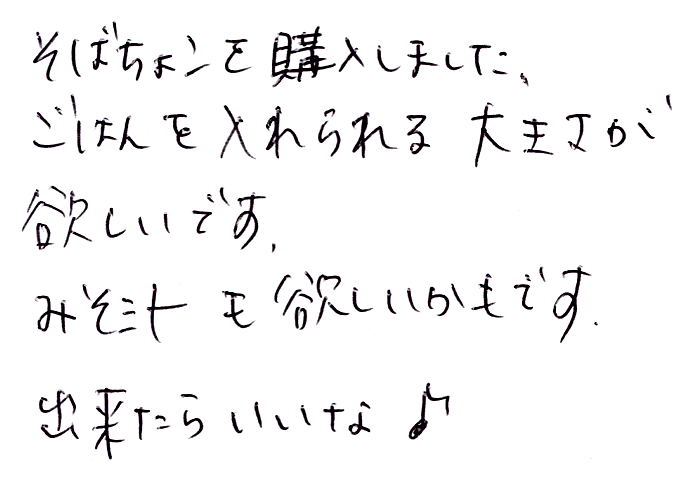 そばちょこを購入しました、
ごはんを入れられる大きさが
欲しいです。
みそ汁も欲しいかもです.
出来たらいいな♪